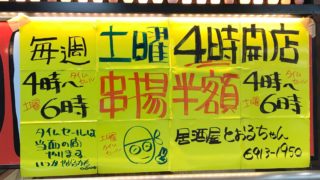 毎週 土曜 4時開店
タイムセール
4時〜6時
土曜
串揚半額
タイムセール
4時〜6時
土曜
タイムセールは
当面の間
やります
土曜
タイムセール
居酒屋とおるちゃん
6913-1950